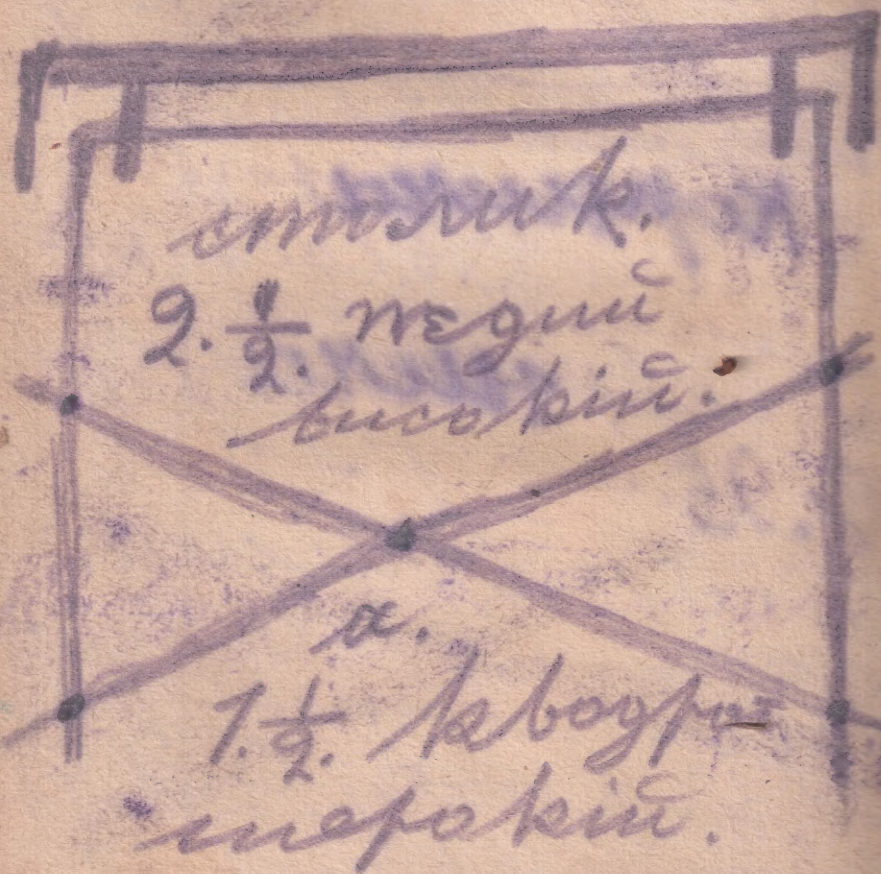 столик.
2. 1/2.
високій.
а.
1. 1/2. квадрат
шерокій.